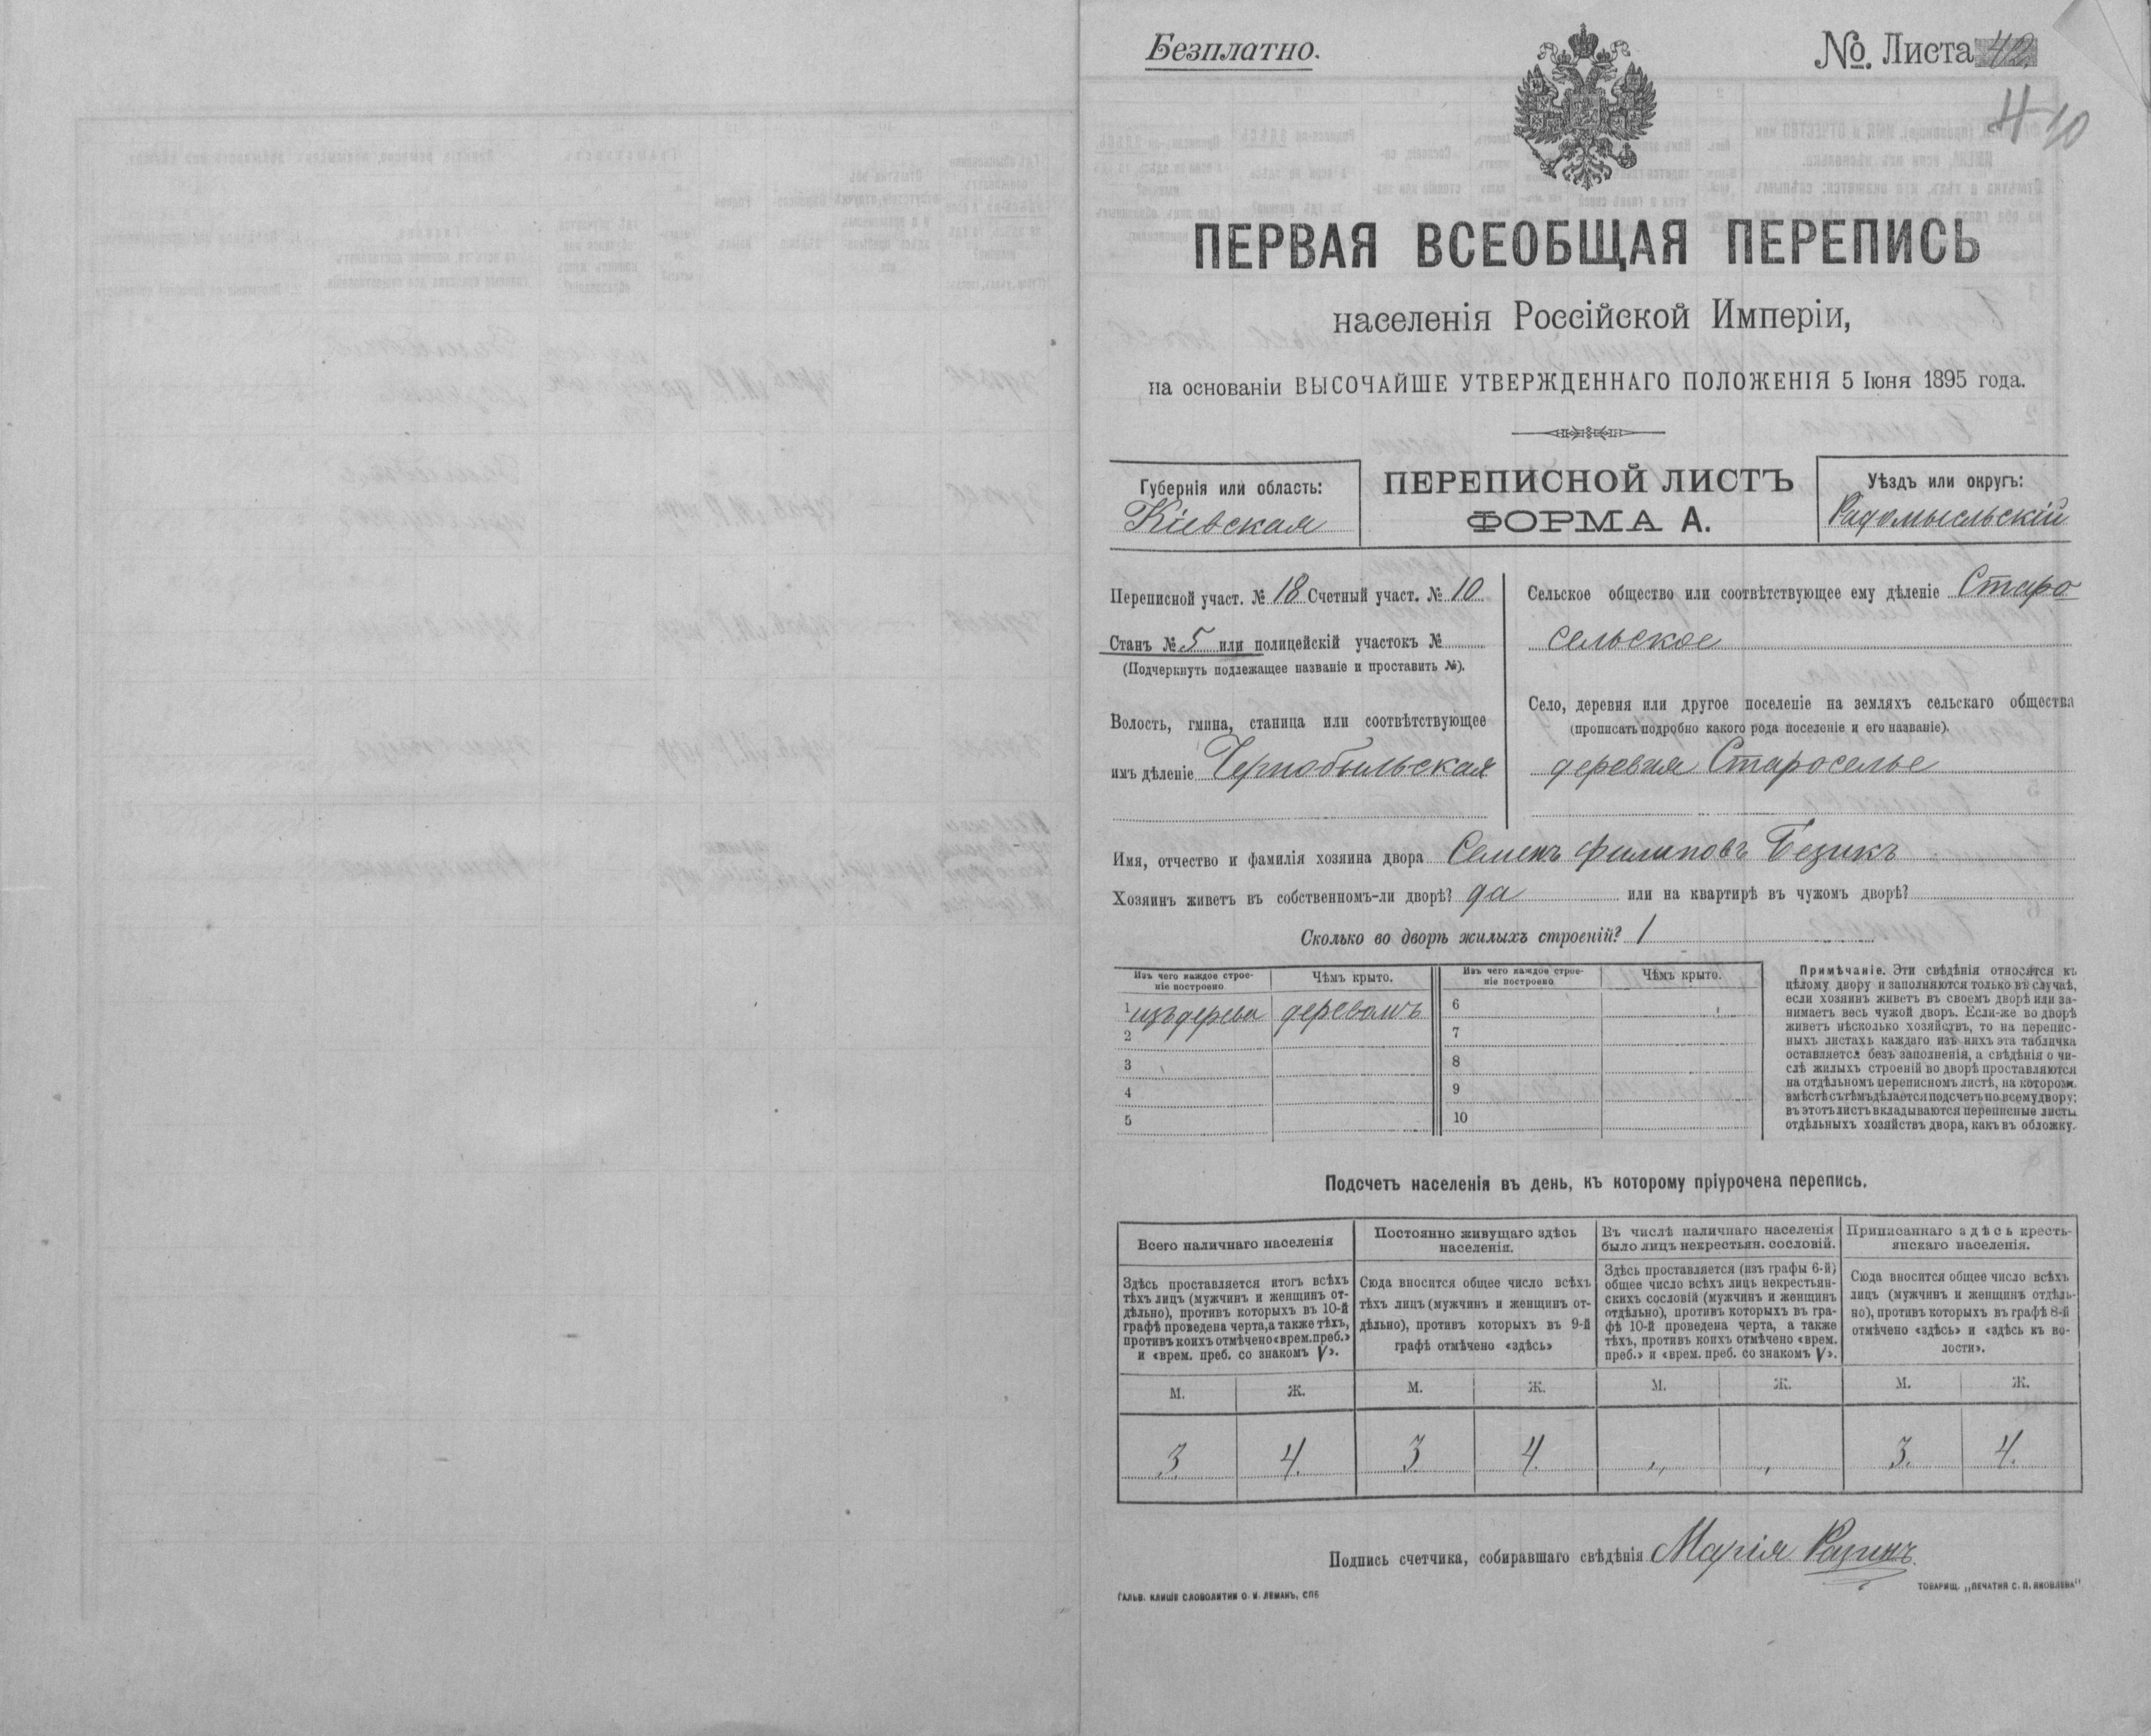 Безплатно.
№. Листа 42.
4 10
ПЕРВАЯ ВСЕОБЩАЯ ПЕРЕПИСЬ
населенія Россійской Имперіи,
на основаніи ВЫСОЧАЙШЕ УТВЕРЖДЕННАГО ПОЛОЖЕНІЯ 5 Іюня 1895 года.
Губернія или область:
Кіевская
ПЕРЕПИСНОЙ ЛИСТЪ
ФОРМА А.
Уѣздъ или округъ:
Радомысльскій
Переписной участ. № 18 Счетный участ. № 10.
Станъ № 5 или полицейскій участокъ №
(Подчеркнуть подлежащее названіе и проставить №).
Волость, гмина, станица или соотвѣтствующее
имъ дѣленіе Чернобыльская
Сельское общество или соотвѣтствующее ему дѣленіе Старо
сельское
Село, деревня или другое поселеніе на земляхъ сельскаго общества
(прописать подробно какого рода поселеніе и его названіе).
деревня Староселье
Имя, отчество и фамилія хозяина двора Семенъ Филиповъ Безикъ
Хозяинъ живетъ въ собственномъ-ли дворѣ? да или на квартирѣ въ чужомъ дворѣ?
Сколько во дворѣ жилыхъ строеній? 1
Изъ чего каждое строе-
ніе построено
Чѣмъ крыто.
Изъ чего каждое строе-
ніе построено
Чѣмъ крыто.
1 изъ дерева деревомъ 6
2 7
3 8
4 9
5 10
Примѣчаніе. Эти свѣдѣнія относятся къ
цѣлому двору и заполняются только въ случаѣ,
если хозяинъ живетъ въ своемъ дворѣ или за-
нимаетъ весь чужой дворъ. Если-же во дворѣ
живетъ нѣсколько хозяйствъ, то на перепис-
ныхъ листахъ каждаго изъ нихъ эта табличка
оставляется безъ заполненія, а свѣдѣнія о чи-
слѣ жилыхъ строеній во дворѣ проставляются
на отдѣльномъ переписномъ листѣ, на которомъ
вмѣстѣ съ тѣмъ дѣлается подсчетъ по всему двору:
въ этотъ листъ вкладываются переписные листы
отдѣльныхъ хозяйствъ двора, какъ въ обложку.
Подсчетъ населенія въ день, къ которому пріурочена перепись.
Всего наличнаго населенія
Здѣсь проставляется итогъ всѣхъ
тѣхъ лицъ (мужчинъ и женщинъ от-
дѣльно), противъ которыхъ въ 10-й
графѣ проведена черта, а также тѣхъ,
противъ коихъ отмѣчено «врем. преб.»
и «врем. преб. со знакомъ V».
Постоянно живущаго здѣсь
населенія.
Сюда вносится общее число всѣхъ
тѣхъ лицъ (мужчинъ и женщинъ от-
дѣльно), противъ которыхъ въ 9-й
графѣ отмѣчено «здѣсь»
Въ числѣ наличнаго населенія
было лицъ некрестьян. сословій.
Здѣсь проставляется (изъ графы 6-й)
общее число всѣхъ лицъ некрестьян-
скихъ сословій (мужчинъ и женщинъ
отдѣльно), противъ которыхъ въ гра-
фѣ 10-й проведена черта, а также
тѣхъ, противъ коихъ отмѣчено «врем.
преб.» и «врем. преб. со знакомъ V».
Приписаннаго здѣсь кресть-
янскаго населенія.
Сюда вносится общее число всѣхъ
лицъ (мужчинъ и женщинъ отдѣль-
но), противъ которыхъ въ графѣ 8-й
отмѣчено «здѣсь» и «здѣсь къ во-
лости».
М. Ж. М. Ж. М. Ж. М. Ж.
3 4. 3 4. „ „ 3. 4.
Подпись счетчика, собиравшаго свѣдѣнія Марія
ГАЛЬВ. КЛИШЕ СЛОВОЛИТНИ О. И. ЛЕМАНЪ, СПБ
ТОВАРИЩ. „ПЕЧАТНЯ С. П. ЯКОВЛЕВА"